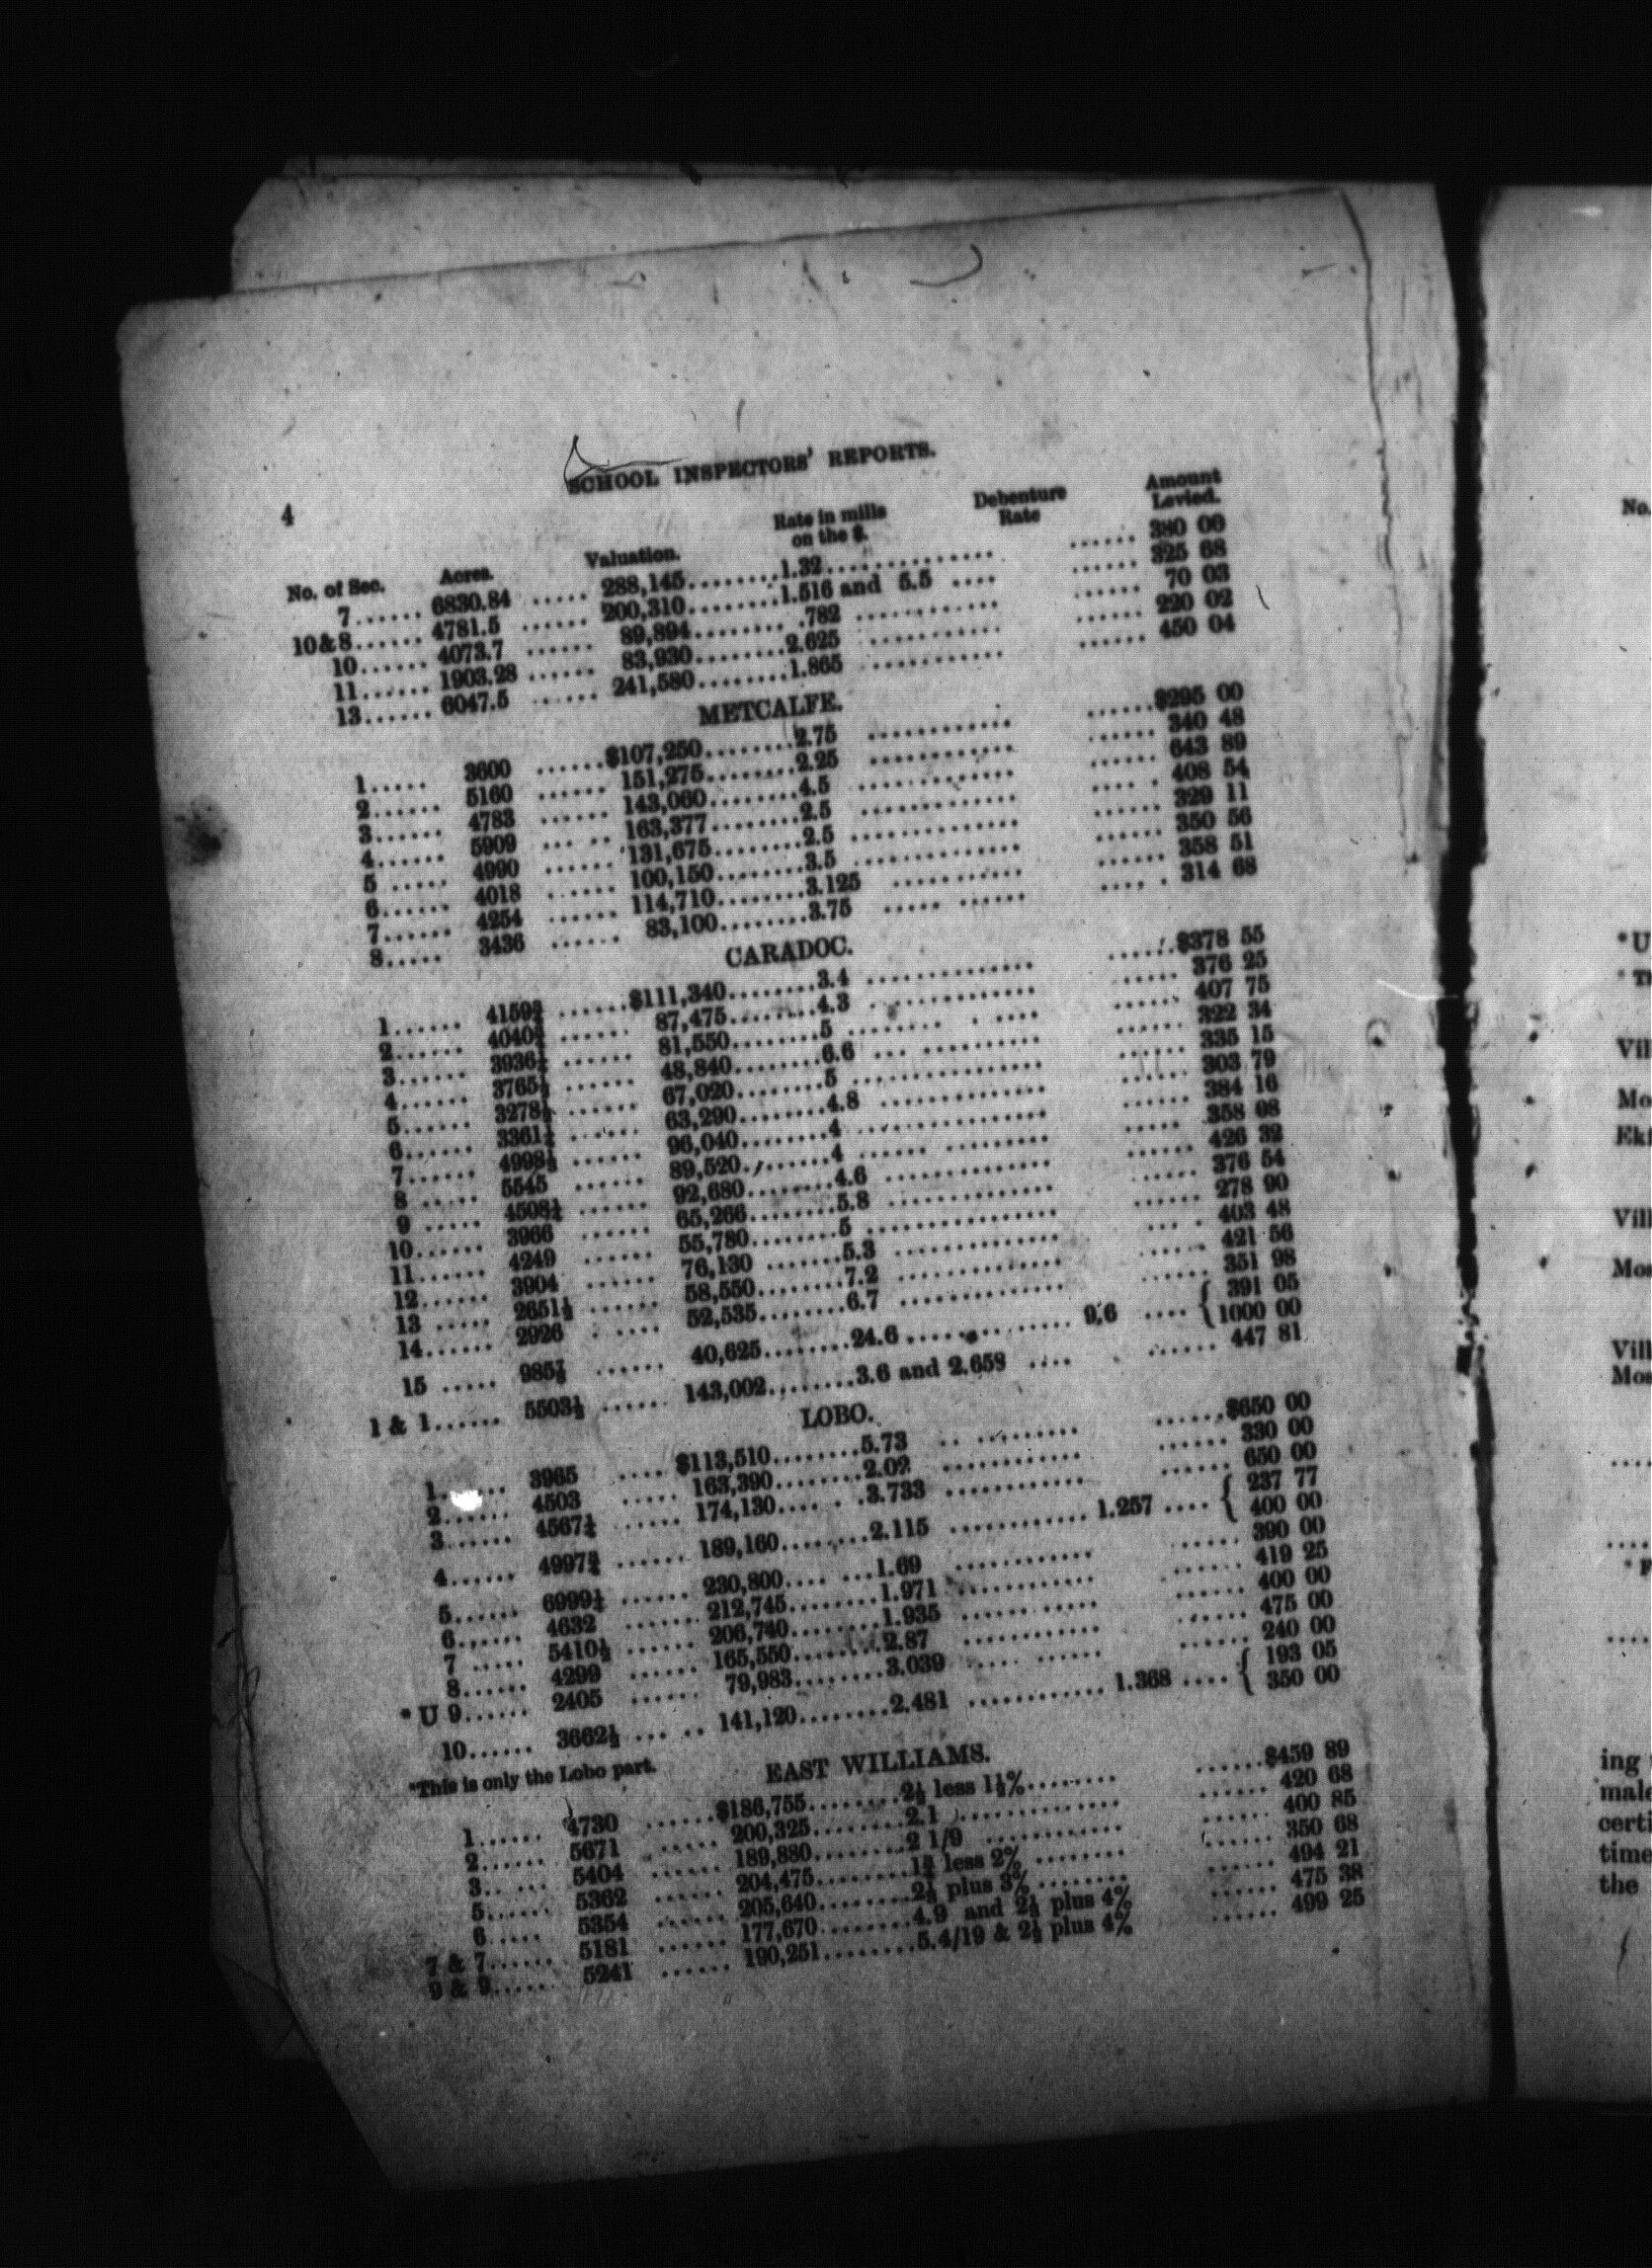 4
SCHOOL INSPECTORS' REPORTS.
No. of Sec. Acres. Valuation. Rate in mills on the $. Debenture Rate Amount Levied.
7...... 6830.84 ..... 288,145........1.32.............. ...... 380 00
10&8...... 4781.5 ...... 200,310........1.516 and 5.5 .... ...... 325 68
10...... 4073.7 ...... 89,894........ .782 ............ ...... 70 03
11...... 1903.28 ...... 83,930........2.625 ........... ...... 220 02
13...... 6047.5 ...... 241,580........1.865 ........... ...... 450 04
METCALFE.
1..... 3600 ......$107,250........2.75 ............ ......$295 00
2...... 5160 ...... 151,275........2.25 ............ ...... 340 48
3...... 4783 ...... 143,060........4.5 ............. ...... 643 89
4...... 5909 ... .. 163,377........2.5 ............. .... . 408 54
5 ..... 4990 ...... 131,675........2.5 .............. ...... 329 11
6...... 4018 ...... 100,150........3.5 .............. ...... 350 56
7...... 4254 ...... 114,710........3.125 ........... ...... 358 51
8..... 3436 ...... 83,100........3.75 ..... ...... .... . 314 68
CARADOC.
1...... 4159¾ ......$111,340........3.4 .............. ......$378 55
2...... 4040¾ ...... 87,475........4.3 .............. ...... 376 25
3...... 3936½ ...... 81,550........5 ........ . .... ...... 407 75
4...... 3765½ ...... 48,840........6.6 ... .......... ...... 322 34
5...... 3278½ ...... 67,020........5 ............... ...... 335 15
6...... 3361½ ...... 63,290........4.8 .............. ...... 303 79
7...... 4998½ ...... 96,040........4 ............... ...... 384 16
8 ..... 5545 ...... 89,520........4 ...... ......... ..... 358 08
9 ..... 4508¼ ...... 92,680........4.6 .............. ...... 426 32
10...... 3966 ...... 65,266........5.8 .............. ...... 376 54
11...... 4249 ...... 55,780........5 ............... ...... 278 90
12...... 3904 ...... 76,130 .......5.3 .............. ... . 403 48
13 ..... 2651½ ...... 58,550........7.2 .............. ...... 421 56
14...... 2926 . .... 52,535........6.7 .............. ...... 351 98
15 ..... 985⅞ ...... 40,625........24.6 .............. 9.6 .... { 391 05
1000 00
1 & 1...... 5503½ ...... 143,002........3.6 and 2.659 .... ...... 447 81
LOBO.
1...... 3965 .... $113,510........5.73 .. ......... ......$650 00
2...... 4503 ..... 163,390........2.02 ............ ...... 330 00
3...... 4567¼ ...... 174,130.... . .3.733 ............ ...... 650 00
4...... 4997¾ ...... 189,160........2.115 ............ 1.257 .... { 237 77
400 00
5...... 6999¼ ...... 230,800.... ...1.69 ............ ...... 390 00
6...... 4632 ...... 212,745........1.971 ............ ...... 419 25
7 ..... 5410½ ...... 206,740........1.935 ...... ..... ...... 400 00
8...... 4299 ...... 165,550........2.87 ............ ...... 475 00
* U 9...... 2405 ...... 79,983........3.039 ..... ...... ...... 240 00
10...... 3662½ ... .. 141,120........2.481 ............ 1.368 .... { 193 05
350 00
*This is only the Lobo part.
EAST WILLIAMS.
1...... 4730 ......$186,755........2½ less 1½%........ ......$459 89
2...... 5671 ..... 200,325........2.1 .............. ...... 420 68
3.. ... 5404 ...... 189,880........2 1/9 ............ ...... 400 85
5...... 5362 ...... 204,475........1¾ less 2% ........ ...... 350 68
6..... 5354 ...... 205,640........2½ plus 3% ........ ...... 494 21
7 & 7...... 5181 ...... 177,670........4.9 and 2½ plus 4% ...... 475 38
9 & 9...... 5241 ...... 190,251........5.4/19 & 2½ plus 4% ...... 499 25
No.
* U
Vil
Mo
Vill
Mos
Vill
Mos
ing
male
certi
time
the